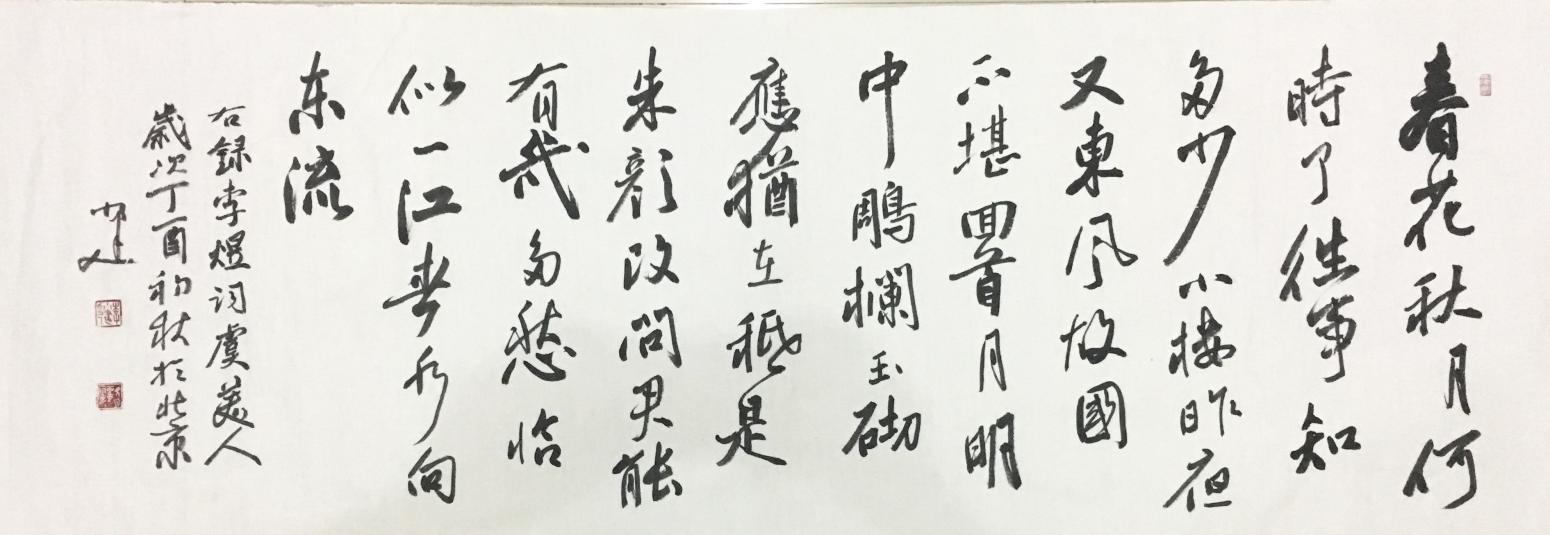 春花秋月何
時了往事知
多少小楼昨夜
又東風故國
不堪回首月明
中雕欄玉砌
應猶在秪是
朱颜改問君能
有幾多愁恰
似一江春水向
东流
右録李煜词虞美人
歲次丁酉初秋於北京